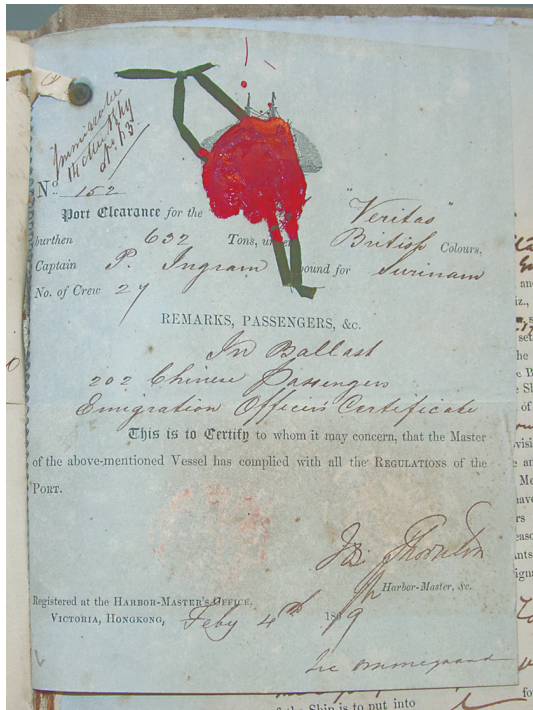 Nº 152
Port Clearance for the "Veritas"
burthen 632 Tons, under British Colours,
Captain P. Ingram bound for Surinam
No. of Crew 27
REMARKS, PASSENGERS, &c.
In Ballast
202 Chinese Passengers
Emigration Officer's Certificate
This is to Certify to whom it may concern, that the Master
of the above-mentioned Vessel has complied with all the REGULATIONS of the
PORT.
Thornton
Harbor-Master, &c.
Registered at the HARBOR-MASTER'S OFFICE,
VICTORIA, HONGKONG, Feby 4th 1869
of the Ship is to put into